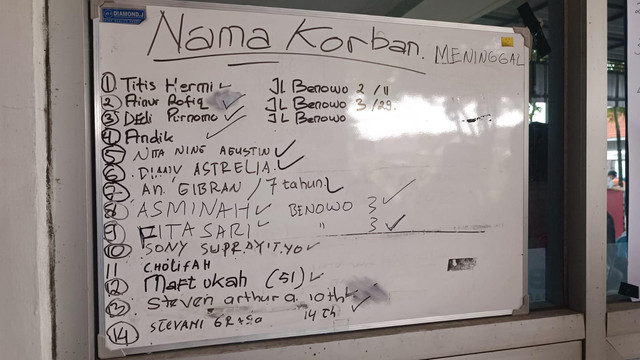 DIAMOND
Nama Korban. MENINGGAL
1 Titis Hermi JL Benowo 2 / 11
2 Ainur Rofiq JL Benowo 3 / 29.
3 Dedi Purnomo JL Benowo
4 Andik
5 NITA NING AGUSTIN
6 ASTRELIA.
7 An. GIBRAN / 7 tahun.
8 ASMINAH BENOWO 3
9 FITASARI " 3
10 SONY
11 CHOLIFAH
12 Maftukah (51)
13 Steven arthur a. 10th
14 STEVANI 14 Th